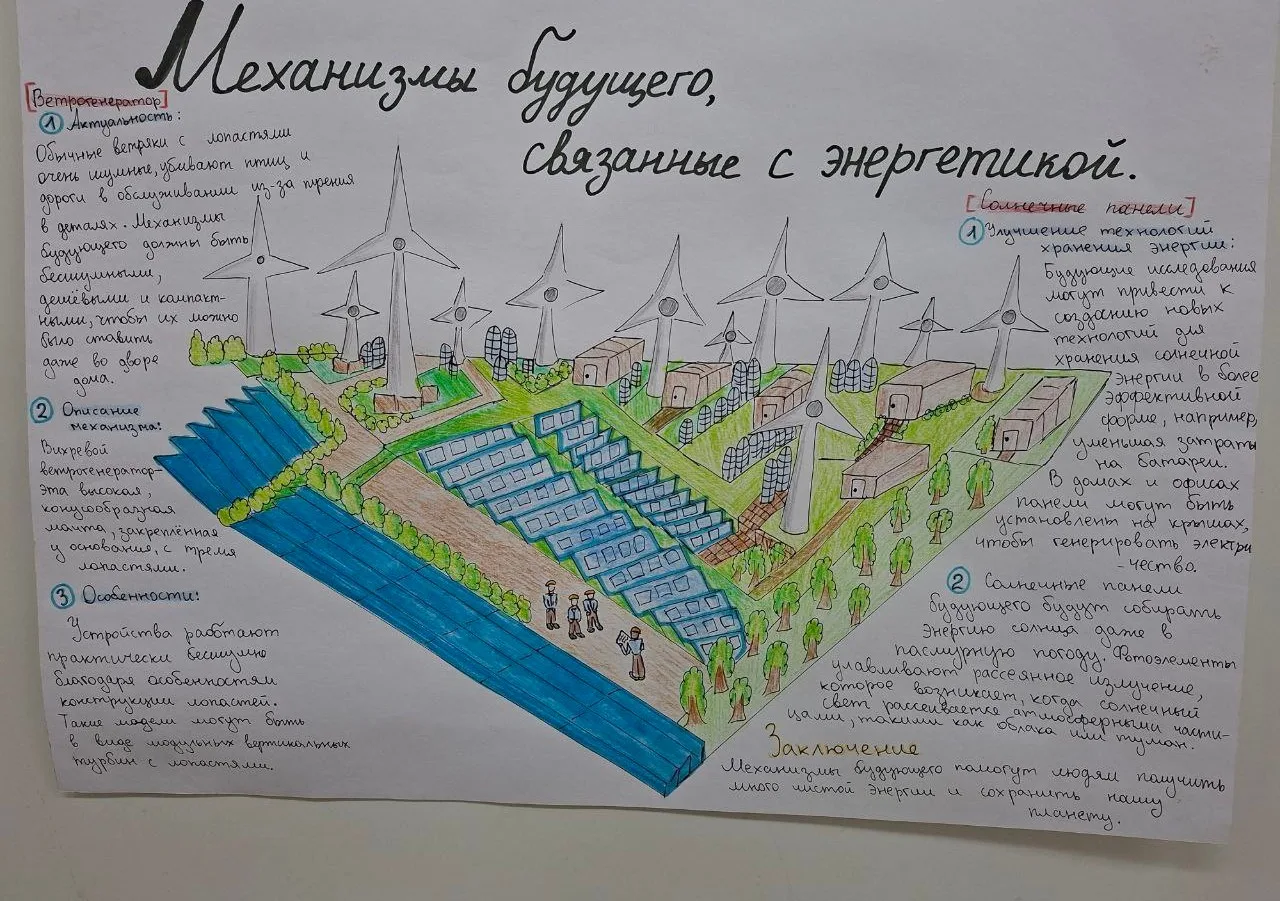 Механизмы будущего,
связанные с энергетикой.
[Ветрогенератор]
1 Актуальность:
Обычные ветряки с лопастями
очень шумные, убивают птиц и
дороги в обслуживании из-за трения
в деталях. Механизмы
будующего должны быть
бесшумными,
дешёвыми и компакт-
ными, чтобы их можно
было ставить
даже во дворе
дома.
2 Описание
механизма:
Вихревой
ветрогенератор-
это высокая,
конусообразная
мачта, закреплённая
у основание, с тремя
лопастями.
3 Особенности:
Устройства работают
практически бесшумно
благодаря особенностям
конструкции лопастей.
Такие модели могут быть
в виде модульных вертикальных
турбин с лопастями.
[Солнечные панели]
1 Улучшение технологий
хранения энергии:
Будующие исследования
могут привести к
созданию новых
технологий для
хранения солнечной
энергии в более
эффективной
форме, например,
уменьшая затраты
на батареи.
В домах и офисах
панели могут быть
установлены на крышах,
чтобы генерировать электри
-чество.
2 Солнечные панели
будующего будут собирать
энергию солнца даже в
пасмурную погоду. Фотоэлементы
улавливают рассеянное излучение,
которое возникает, когда солнечный
свет рассеивается атмосферными части-
цами, такими как облака или туман.
Заключение
Механизмы будующего помогут людям получить
много чистой энергии и сохранить нашу
планету.